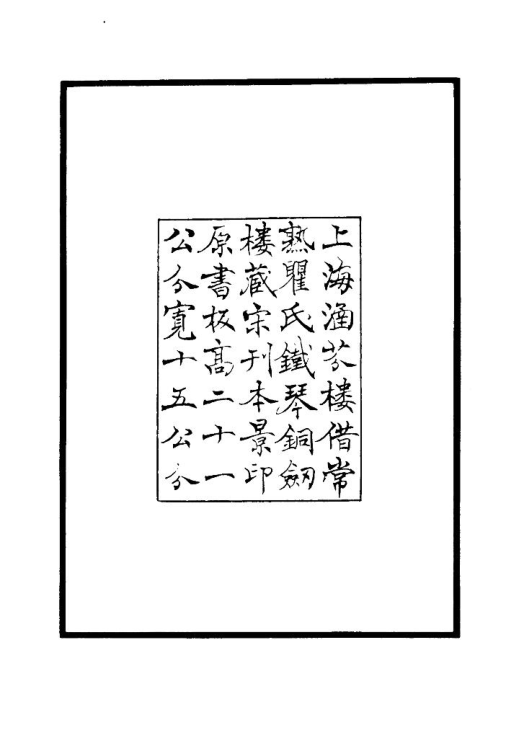 上海涵芬樓借常
熟瞿氏鐵琴銅劒
樓藏宋刊本景印
原書板高二十一
公分寬十五公分